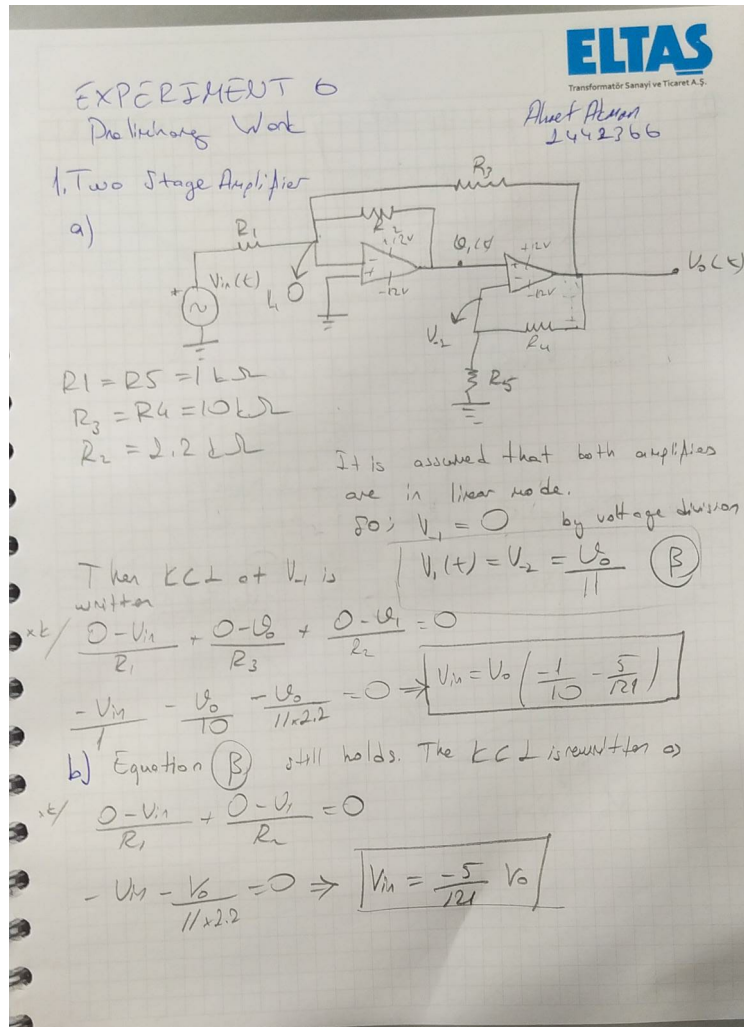 ELTAŞ
Transformatör Sanayi ve Ticaret A.Ş.
EXPERIMENT 6
Work
2442366
1. Two Stage Amplifier
a)
R3
R2
R1
+12V
+12V
Vin(t)
-12V
-12V
Vo(t)
V-2
R4
R5
R1 = R5 = 1 kΩ
R3 = R4 = 10 kΩ
R2 = 2.2 kΩ
It is assumed that both amplifies
are in linear mode.
So; V-1 = 0 by voltage division
V1(t) = V-2 = Vo/11 (β)
Then KCL at V-1 is
written
(0-Vin)/R1 + (0-Vo)/R3 + (0-V1)/R2 = 0
-Vin/1 - Vo/10 - Vo/(11x2.2) = 0 ⇒ Vin = Vo (-1/10 - 5/121)
b) Equation (β) still holds. The KCL is rewritten as
(0-Vin)/R1 + (0-V1)/R2 = 0
-Vin - Vo/(11x2.2) = 0 ⇒ Vin = -5/121 Vo